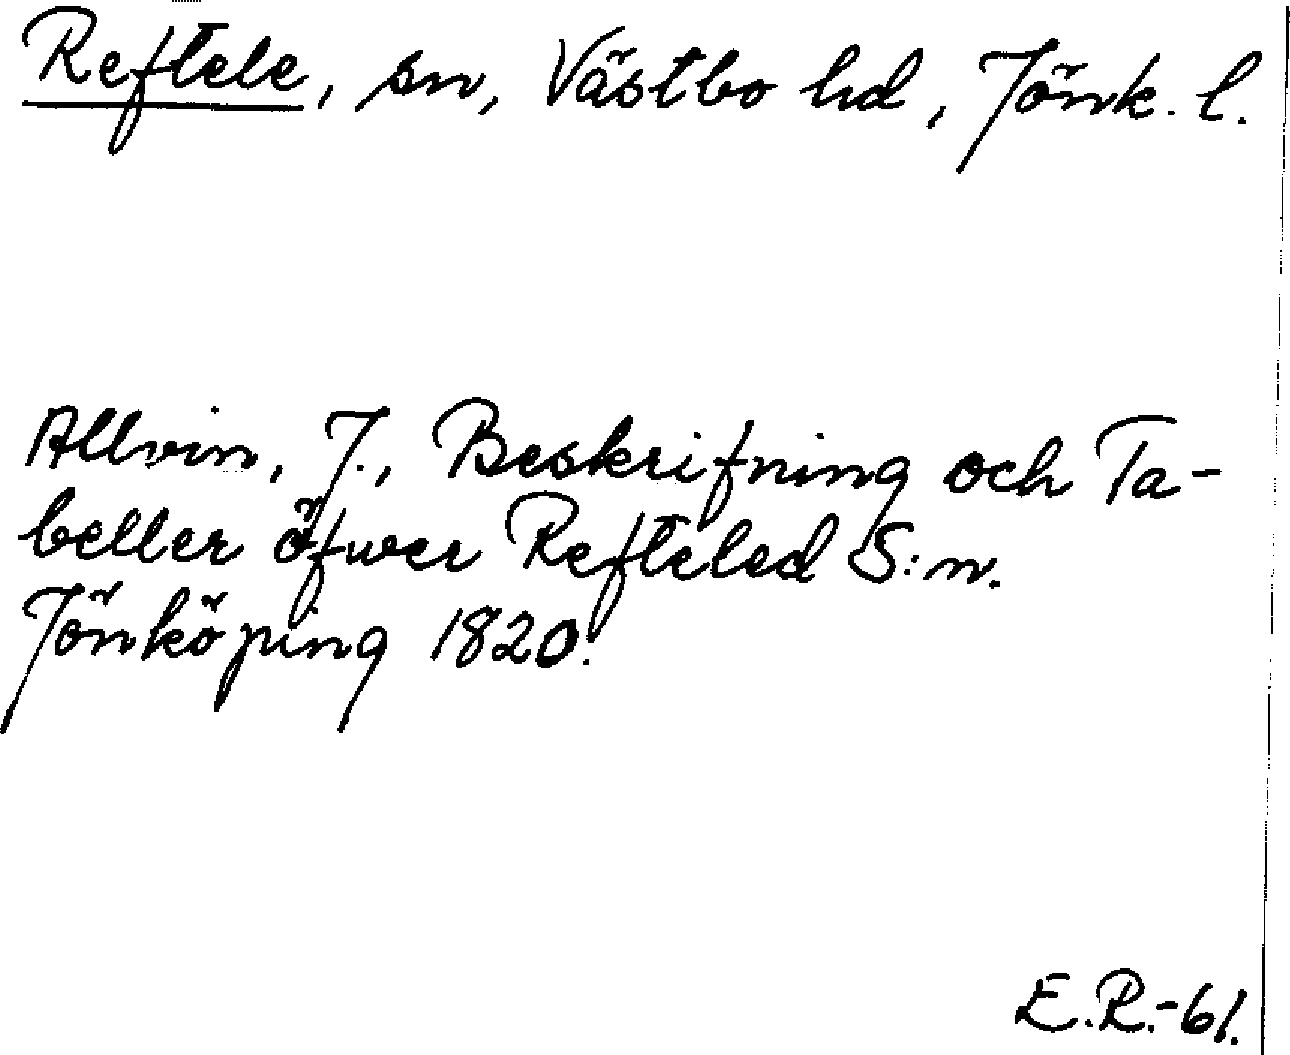 Reftele, sn, Västbo hd, Jönk. l.
Allvin, J., Beskrifning och Ta-
beller öfwer Refteled S:n.
Jönköping 1820.
E.R.-61.